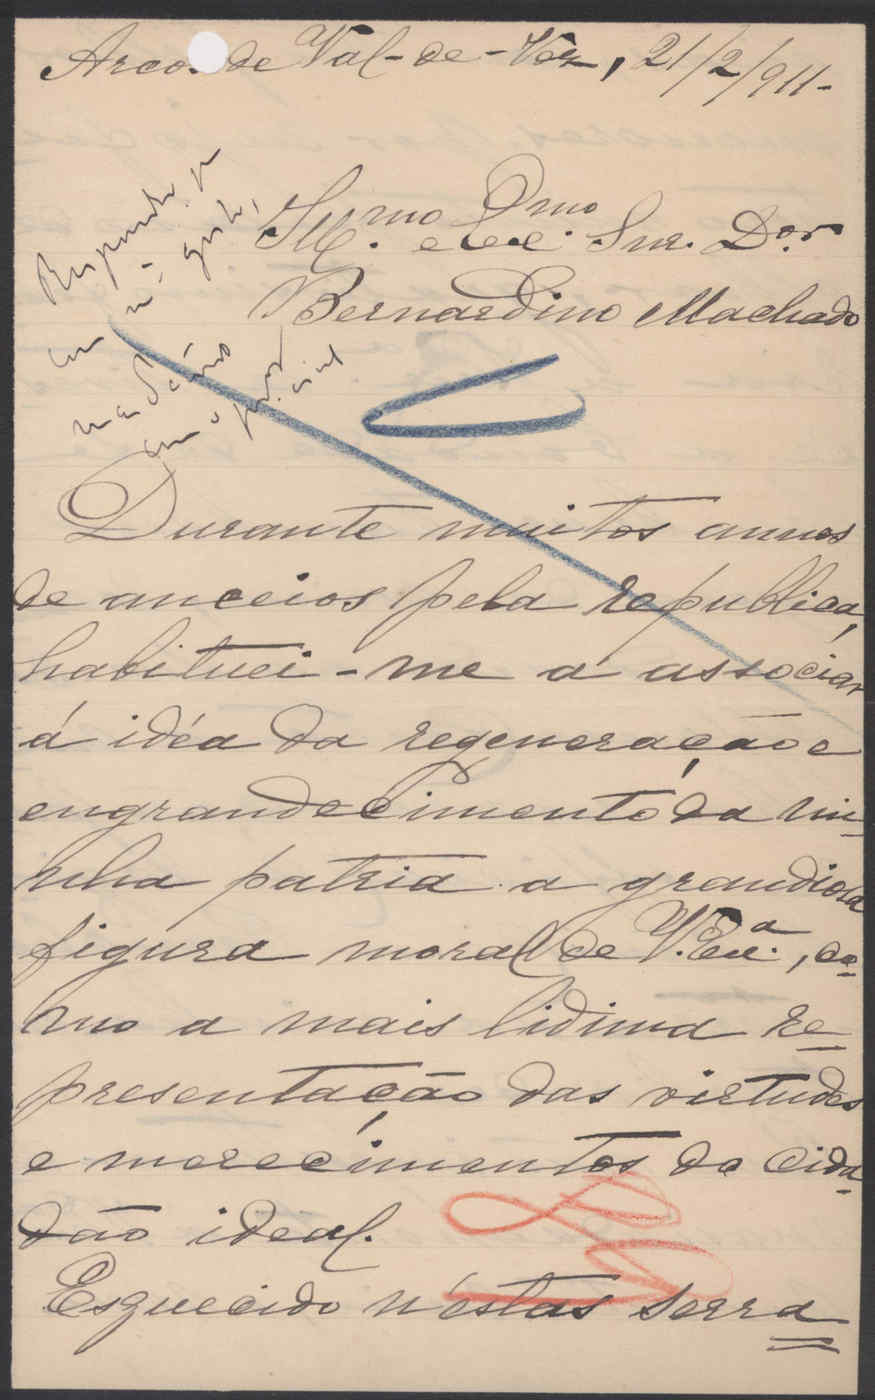 Arcos de Val-de-Vez, 21/2/911-
Illmo. e Exmo. Snr. Dor.
Bernardino Machado
Durante muitos annos
de anceios pela republica,
habituei-me a associar
á idéa da regeneração e
engrandecimento da mi-
nha patria a grandiosa
figura moral de V. Exa., co-
mo a mais lidima re-
presentação das virtudes
e merecimentos do cida-
dão ideal.
Esquecido n'estas serra